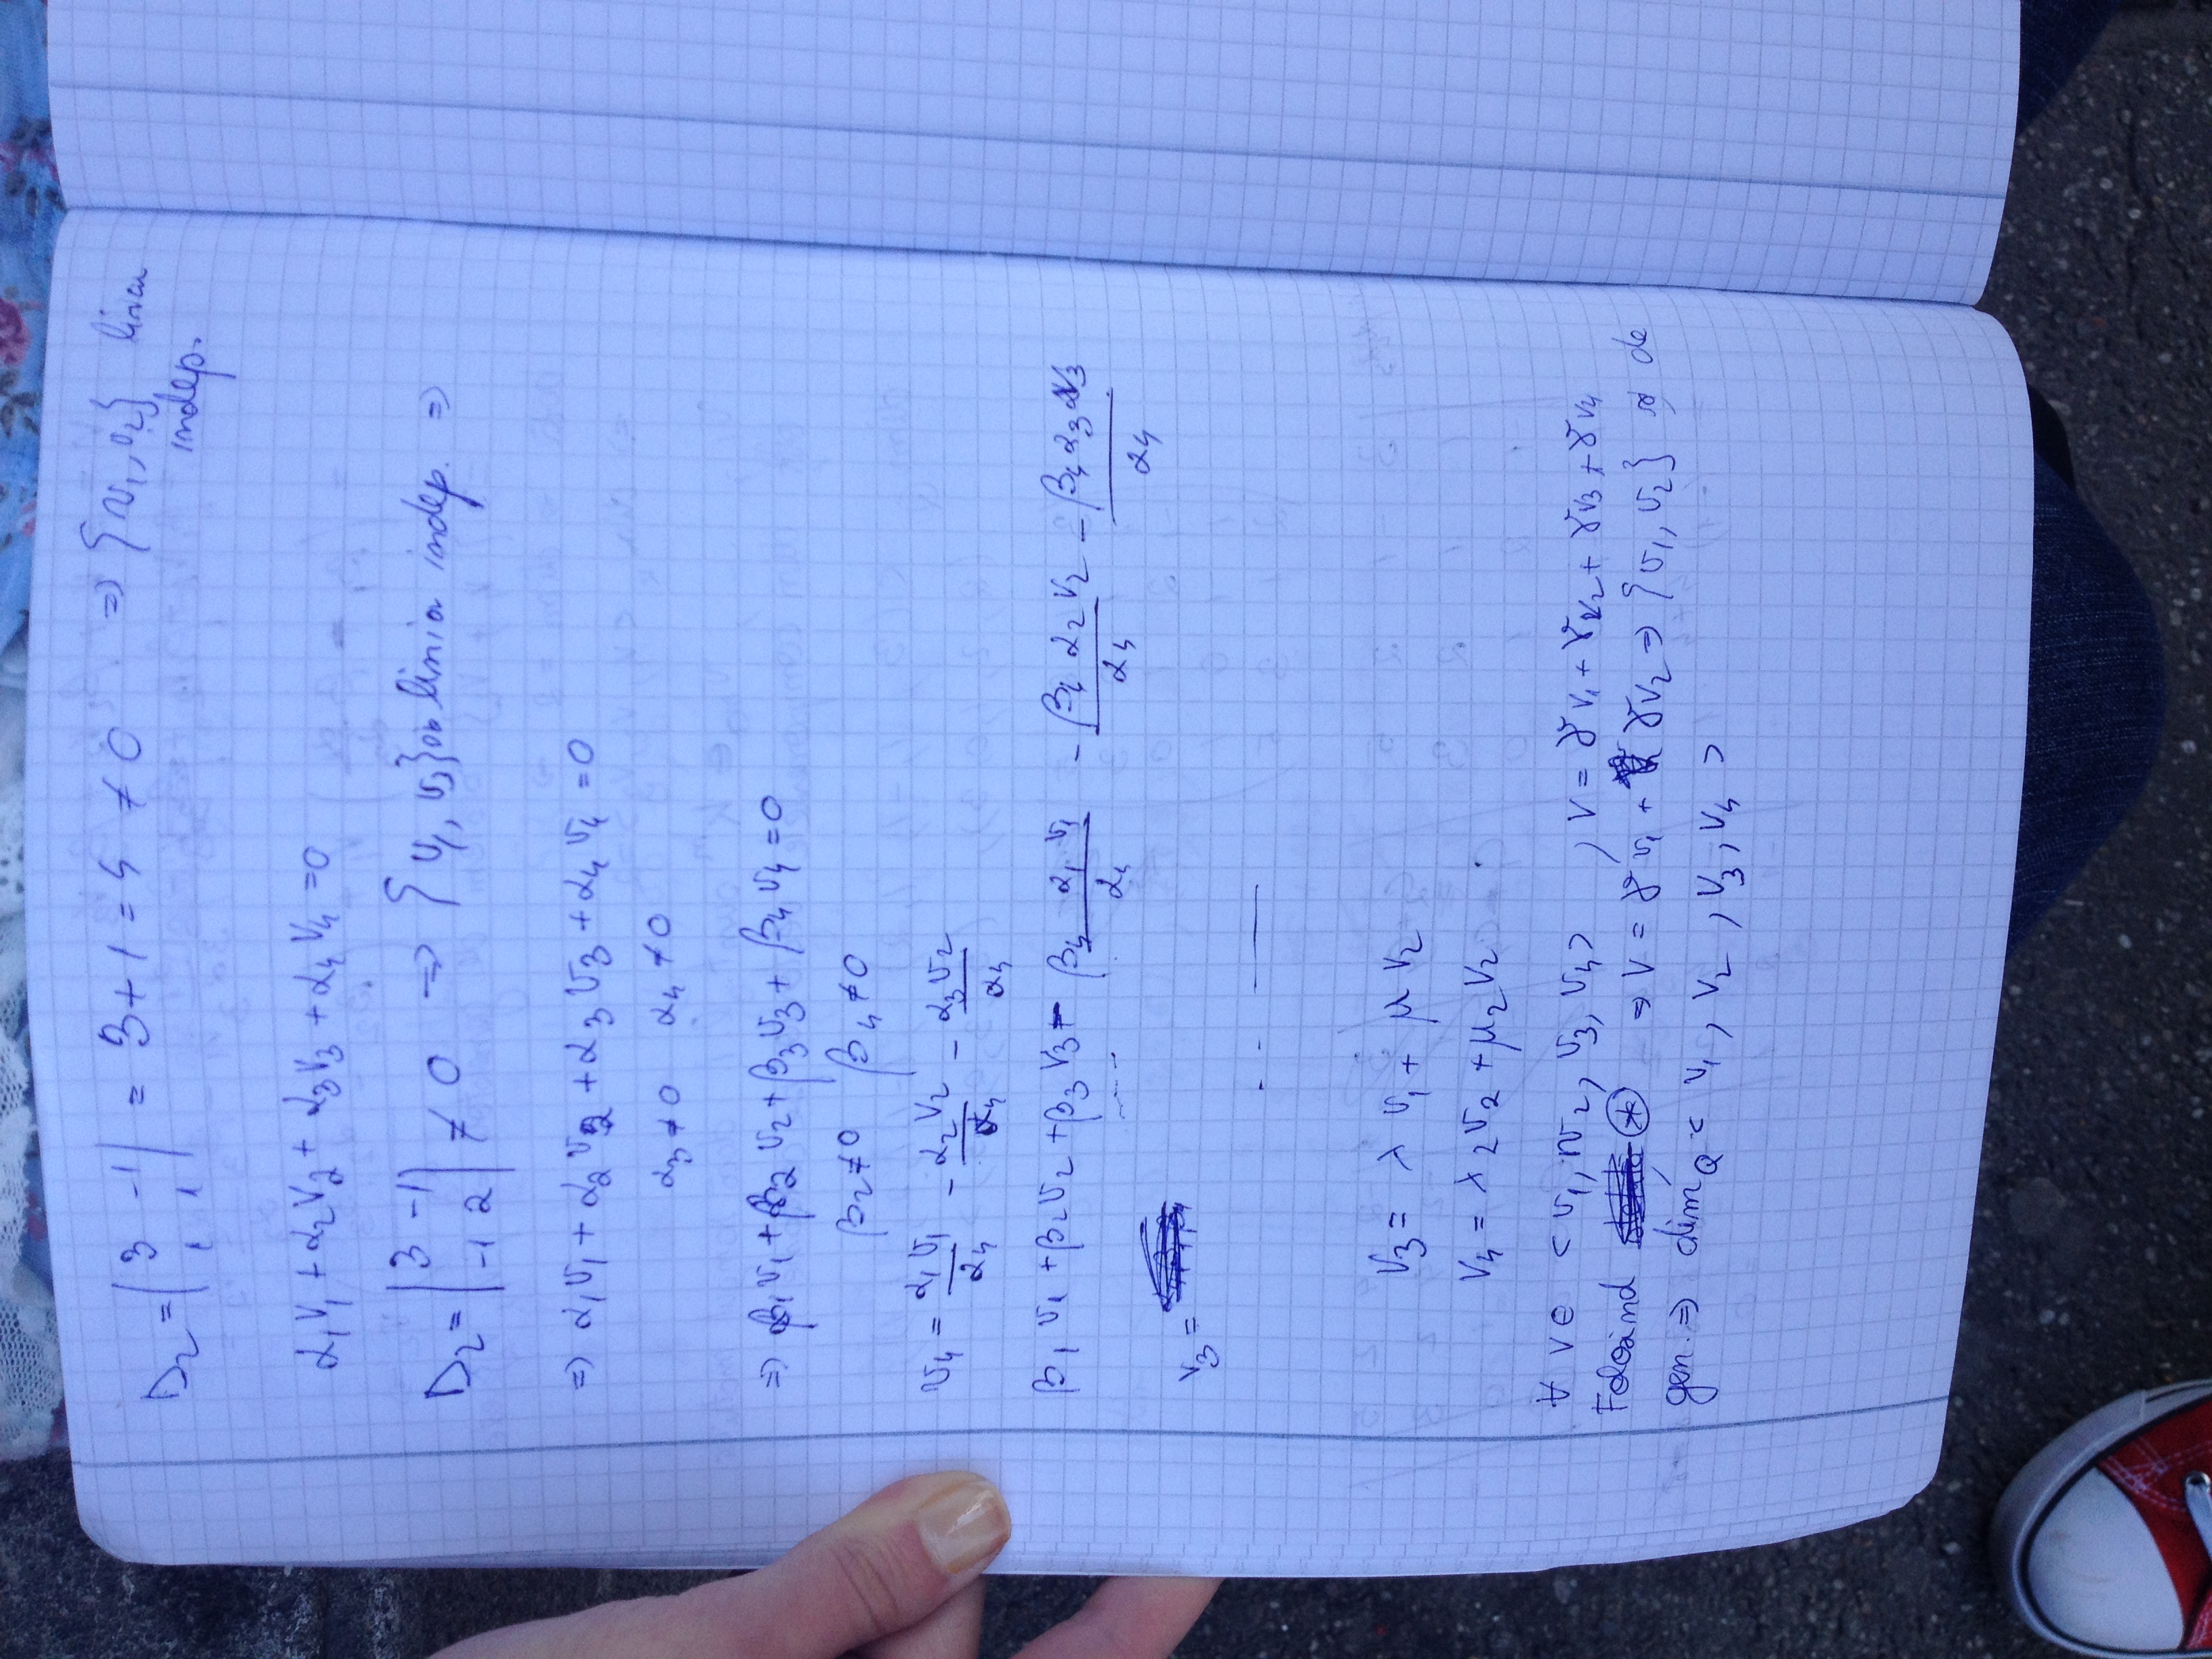 D₂ = | 3 -1 | = 3+1 = 4 ≠ 0 ⇒ {v₁, v₂} liniar
| 1 1 | indep.
α₁v₁ + α₂v₂ + α₃v₃ + α₄v₄ = 0
D₂ = | 3 -1 | ≠ 0 ⇒ {v₁, v₃} linia indep. ⇒
| -1 2 |
⇒ α₁v₁ + α₂v₂ + α₃v₃ + α₄v₄ = 0
α₃ ≠ 0 α₄ ≠ 0
⇒ β₁v₁ + β₂v₂ + β₃v₃ + β₄v₄ = 0
β₂ ≠ 0 β₄ ≠ 0
v₄ = α₁v₁/α₄ - α₂v₂/α₄ - α₃v₂/α₄
β₁v₁ + β₂v₂ + β₃v₃ - β₄α₁v₁/α₄ - β₄α₂v₂/α₄ - β₄α₃v₃/α₄
v₃ =
v₃ = λv₁ + μv₂
v₄ = λ₂v₂ + μ₂v₂
∀ v ∈ <v₁, v₂, v₃, v₄> , v = γv₁ + γv₂ + γv₃ + γv₄
Folosind ⊛ ⇒ v = γv₁ + γv₂ ⇒ {v₁, v₂} de
gen. ⇒ dim_Q <v₁, v₂, v₃, v₄>